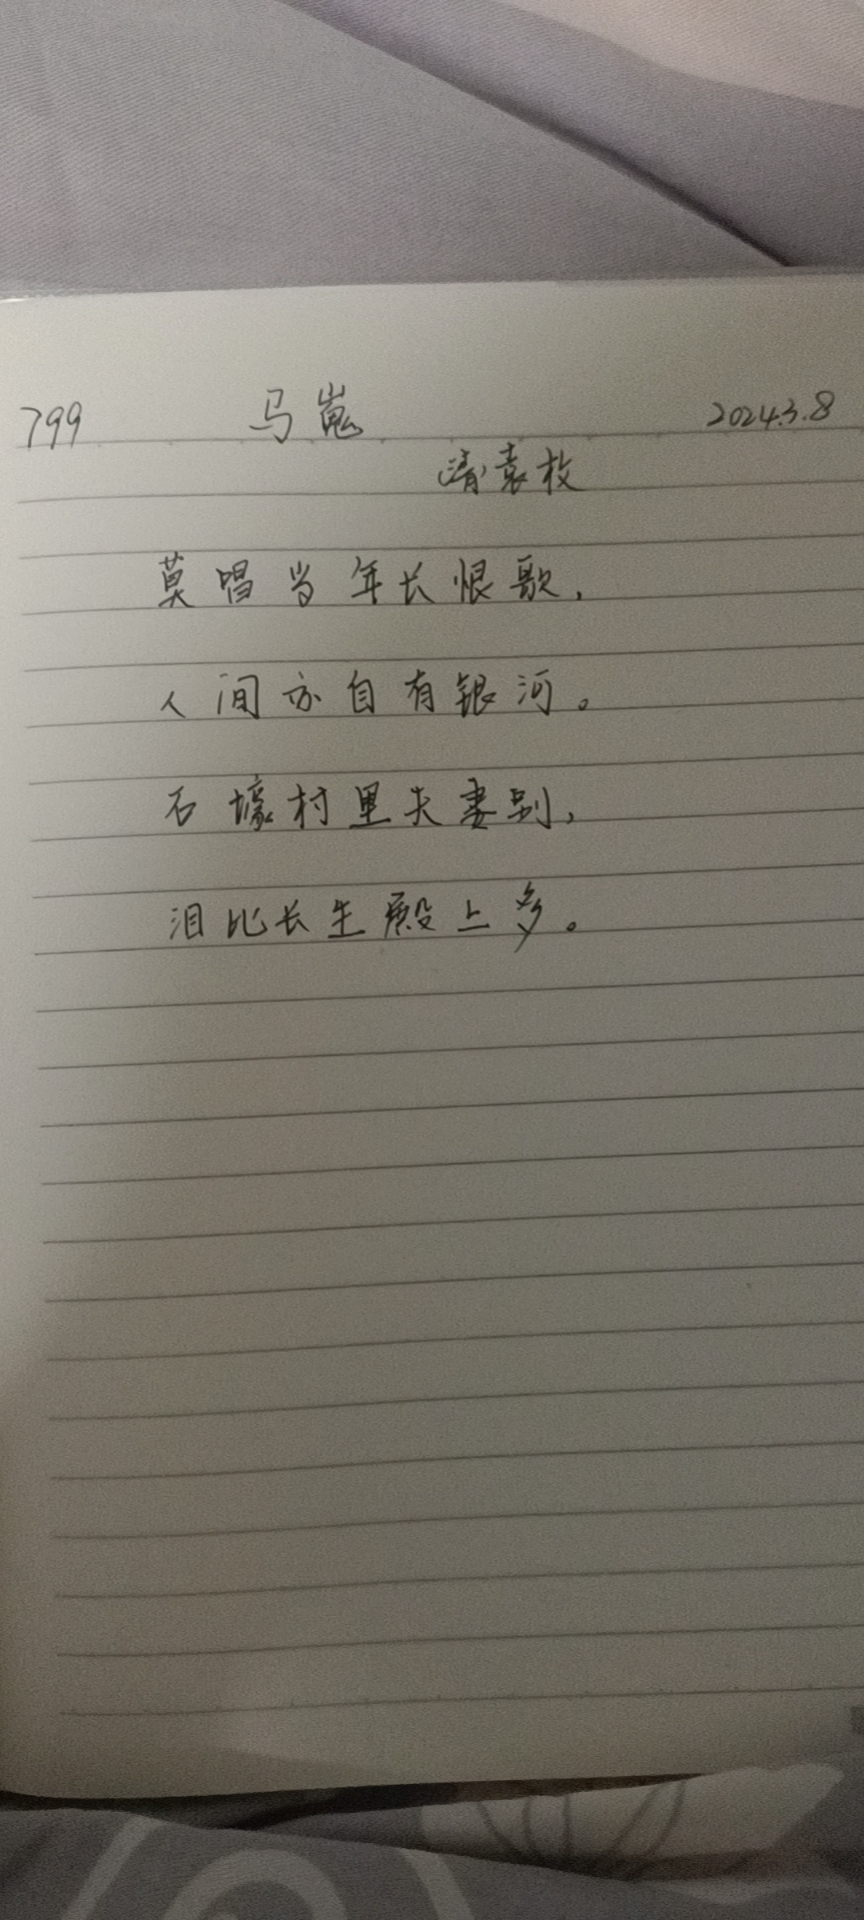 799 马嵬 2024.3.8
清 袁枚
莫唱当年长恨歌,
人间亦自有银河。
石壕村里夫妻别,
泪比长生殿上多。